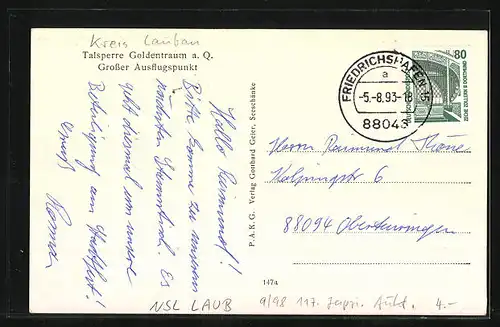 Kreis Lauban
Talsperre Goldentraum a. Q.
Großer Ausflugspunkt
Hallo Raimund!
Bitte komme zu unserem
nächsten Stammtisch. Es
geht diesmal um unsere
Beteiligung am Stadtfest!
Gruß
P.A.K.G. Verlag Gotthard Geier, Seeschänke
147a
FRIEDRICHSHAFEN
a
-5.-8.93-18
88045
80
DEUTSCHE BUNDESPOST
ZECHE ZOLLERN II DORTMUND
Herrn Raimund
Kolpingstr 6
88094 Oberteuringen
NSL LAUB
9/98 117. Aukt. 4.-